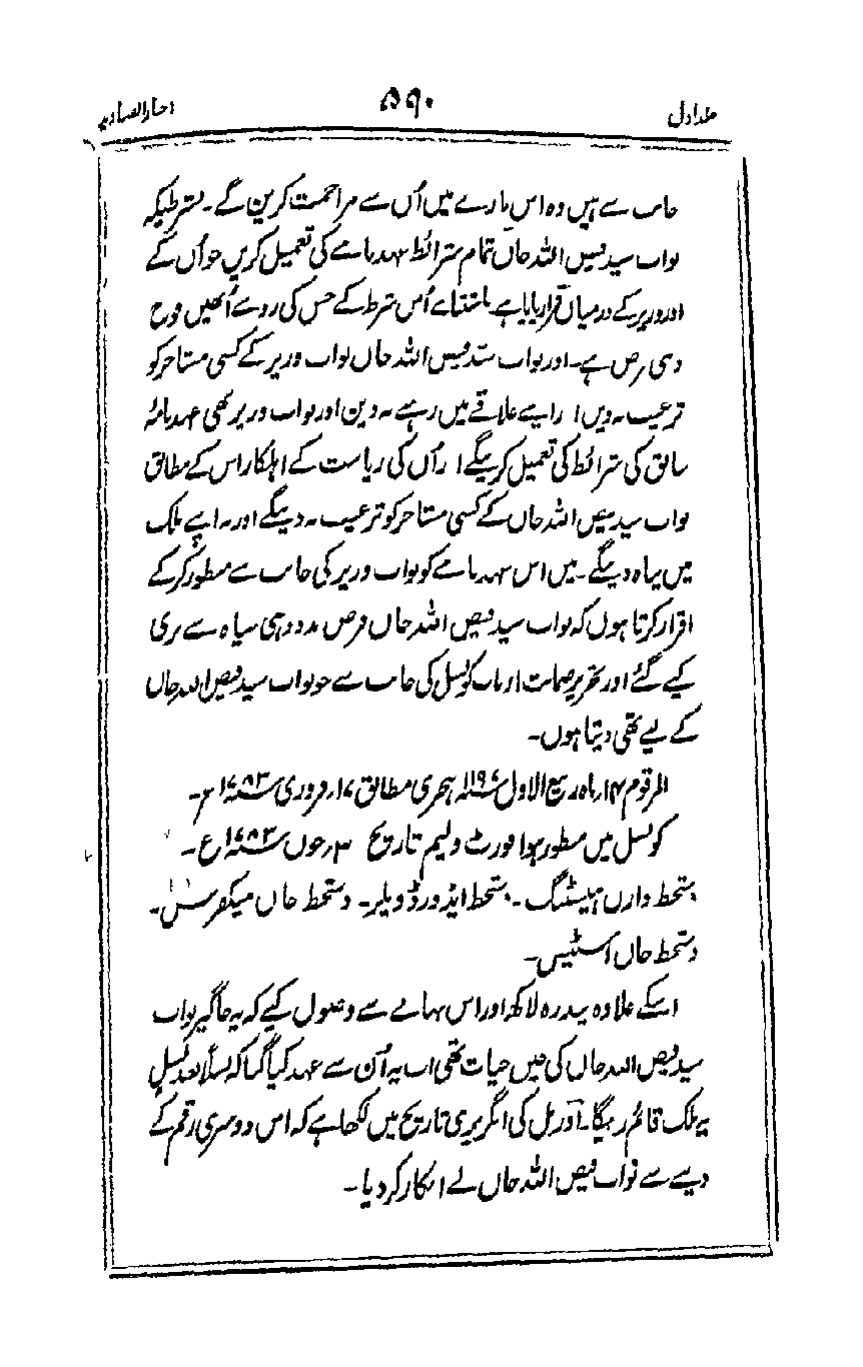 جلد اول ۵۹۰ اخبار الصنادید
جانب سے ہیں وہ اس بارے میں اُن سے مزاحمت کرین گے۔ بشرطیکہ
نواب سید فیض اللہ خاں تمام شرائط عہد نامے کی تعمیل کریں جو اُن کے
اور وزیر کے درمیان قرار پایا ہے باستثناے اُس شرط کے جس کی رو سے اُنھیں فوج
دینی فرض ہے۔ اور نواب سید فیض اللہ خاں نواب وزیر کے کسی مستاجر کو
ترغیب نہ دیں اور اپنے علاقے میں رہنے نہ دین اور نواب وزیر بھی عہد نامۂ
سابق کی شرائط کی تعمیل کرینگے اور اُن کی ریاست کے اہلکار اس کے مطابق
نواب سید فیض اللہ خاں کے کسی مستاجر کو ترغیب نہ دینگے اور نہ اپنے ملک
میں پناہ دینگے۔ میں اس عہد نامے کو نواب وزیر کی جانب سے منظور کرکے
اقرار کرتا ہوں کہ نواب سید فیض اللہ خاں فرض مدد دہی سپاہ سے بری
کیے گئے اور تحریر ضمانت ارباب کونسل کی جانب سے جو نواب سید فیض اللہ خاں
کے لیے تھی دیتا ہوں۔
المرقوم ۱۴؍ ماہ ربیع الاول ۱۱۹۷ ہجری مطابق ۱۷؍ فروری ۱۷۸۳ ء۔
کونسل میں منظور ہوا فورٹ ولیم تاریخ ۳۰؍ جون ۱۷۸۳ ع۔
دستخط وارن ہیسٹنگ۔ دستخط ایڈورڈ ویلر۔ دستخط جان میکفرسن۔
دستخط جان اسٹیبس۔
اسکے علاوہ پندرہ لاکھ اور اس بہانے سے وصول کیے کہ یہ جاگیر نواب
سید فیض اللہ خاں کی حین حیات تھی اب یہ اُن سے عہد کیا گیا کہ نسلاً بعد نسلٍ
یہ ملک قائم رہیگا۔ اور مل کی انگریزی تاریخ میں لکھا ہے کہ اس دوسری رقم کے
دینے سے نواب فیض اللہ خاں نے انکار کر دیا۔